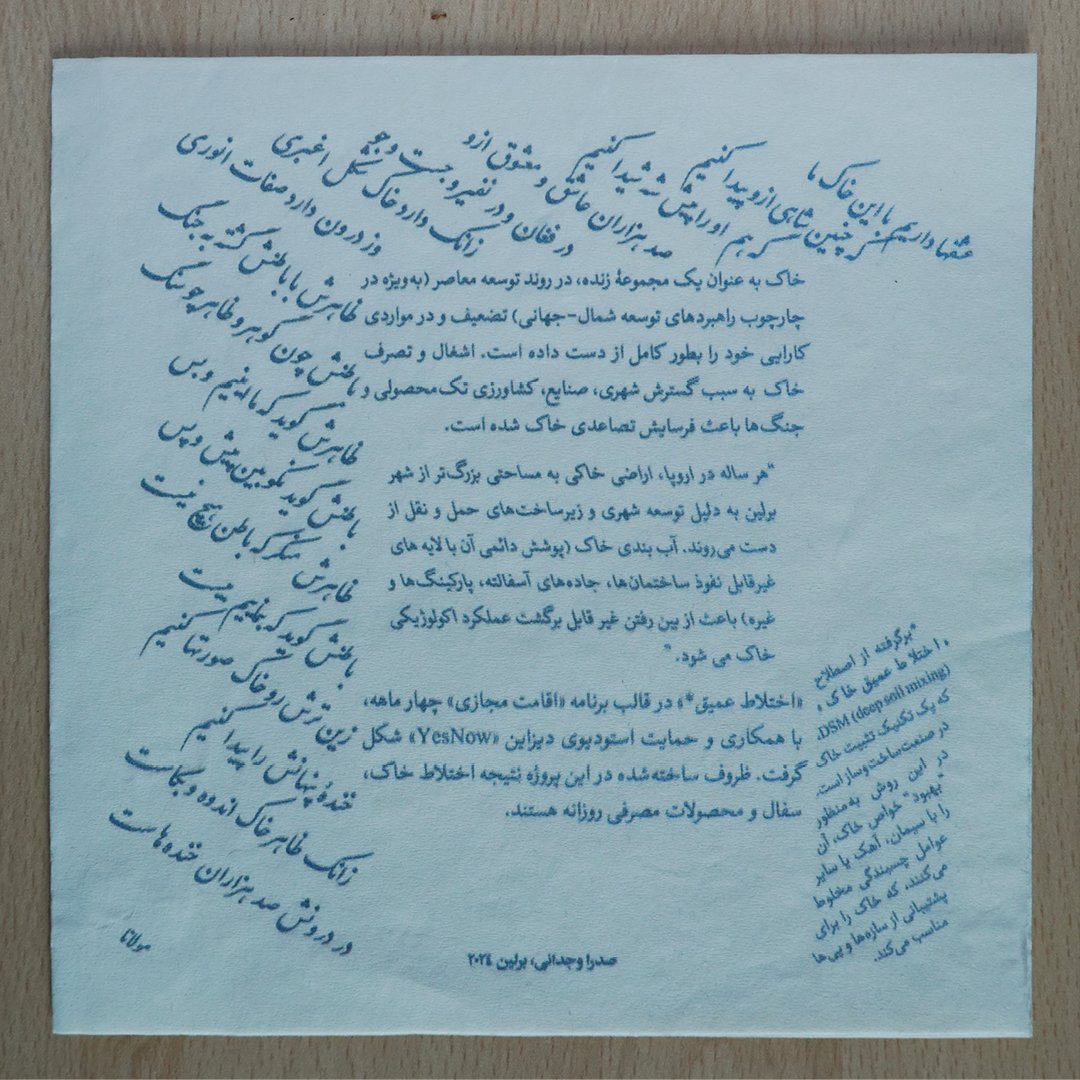 عشقها داریم با این خاک ما
گر چنین شاهی ازو پیدا کنیم
گر هم او را پیش شه شیدا کنیم
صد هزاران عاشق و معشوق ازو
در فغان و در نفیر و جست و جو
زانک دارد خاک شکل اغبری
وز درون دارد صفات انوری
ظاهرش با باطنش گشته به جنگ
باطنش چون گوهر و ظاهر چو سنگ
ظاهرش گوید که ما اینیم و بس
باطنش گوید نکو بین پیش و پس
ظاهرش منکر که باطن هیچ نیست
باطنش گوید که بنماییم بیست
زین ترش رو خاک صورتها کنیم
خندهٔ پنهانش را پیدا کنیم
زانک ظاهر خاک اندوه و بکاست
در درونش صد هزاران خنده هاست
مولانا
خاک به عنوان یک مجموعهٔ زنده، در روند توسعه معاصر (به‌ویژه در
چارچوب راهبردهای توسعه شمال-جهانی) تضعیف و در مواردی
کارایی خود را بطور کامل از دست داده است. اشغال و تصرف
خاک به سبب گسترش شهری، صنایع، کشاورزی تک‌محصولی و
جنگ‌ها باعث فرسایش تصاعدی خاک شده است.
"هر ساله در اروپا، اراضی خاکی به مساحتی بزرگ‌تر از شهر
برلین به دلیل توسعه شهری و زیرساخت‌های حمل و نقل از
دست می‌روند. آب بندی خاک (پوشش دائمی آن با لایه های
غیرقابل نفوذ ساختمان‌ها، جاده‌های آسفالته، پارکینگ‌ها و
غیره) باعث از بین رفتن غیر قابل برگشت عملکرد اکولوژیکی
خاک می شود."
«اختلاط عمیق*» در قالب برنامه «اقامت مجازی» چهار ماهه،
با همکاری و حمایت استودیوی دیزاین «YesNow» شکل
گرفت. ظروف ساخته‌شده در این پروژه نتیجه اختلاط خاک،
سفال و محصولات مصرفی روزانه هستند.
*برگرفته از اصطلاح
«اختلاط عمیق خاک»
DSM (deep soil mixing).
که یک تکنیک تثبیت خاک
در صنعت ساخت‌وساز است.
در این روش به‌منظور
"بهبود" خواص خاک، آن
را با سیمان، آهک یا سایر
عوامل چسبندگی مخلوط
می‌کنند. که خاک را برای
پشتیبانی از سازه‌ها و پی‌ها
مناسب می‌کند.
صدرا وجدانی، برلین ۲۰۲۴